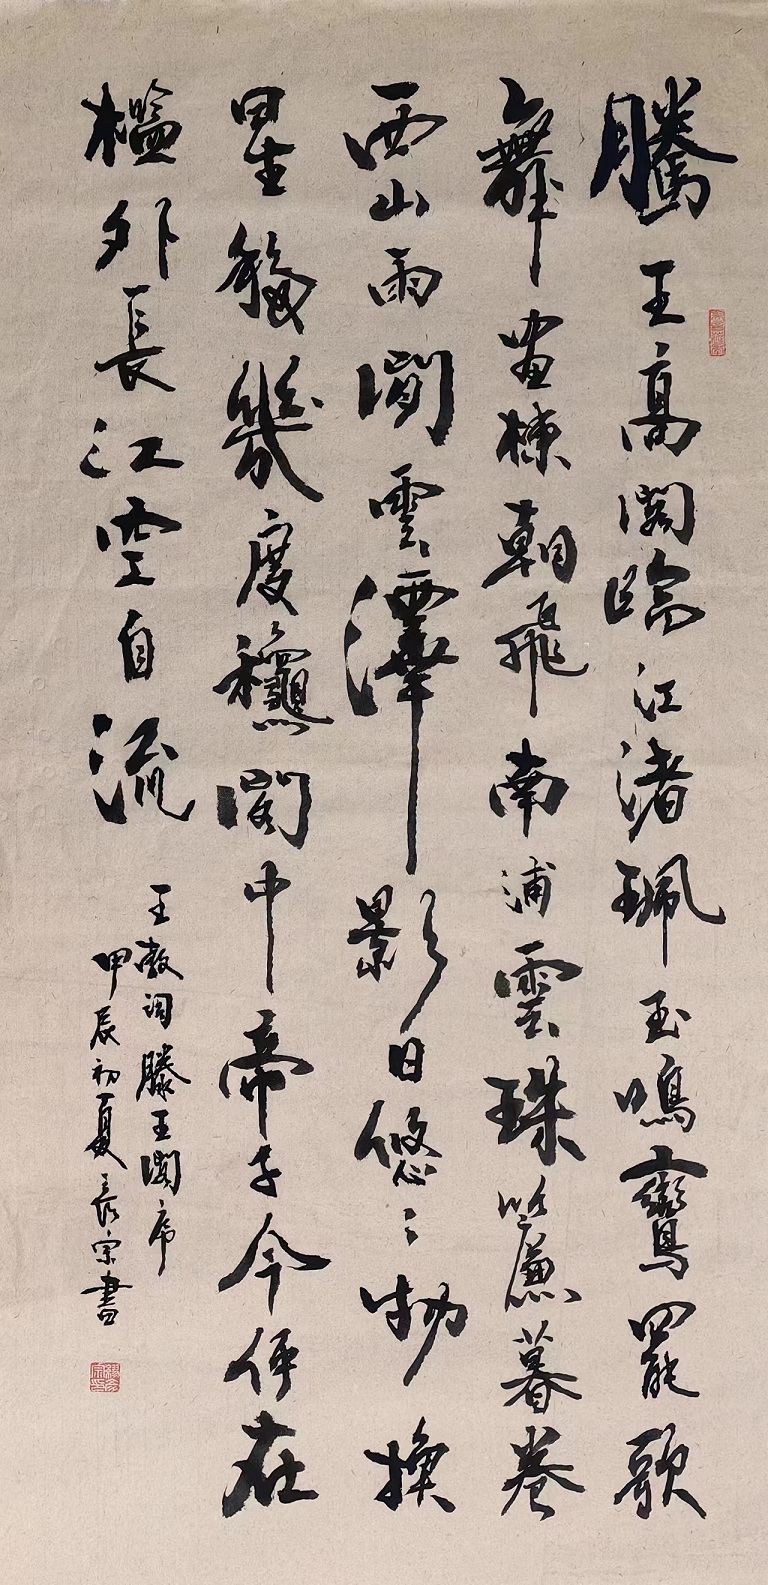 騰王高閣臨江渚珮玉鳴鸞罷歌
舞畫棟朝飛南浦雲珠簾暮卷
西山雨閒雲潭影日悠々物換
星移幾度龝閣中帝子今何在
檻外長江空自流
王勃詞滕王閣序
甲辰初夏長宗書